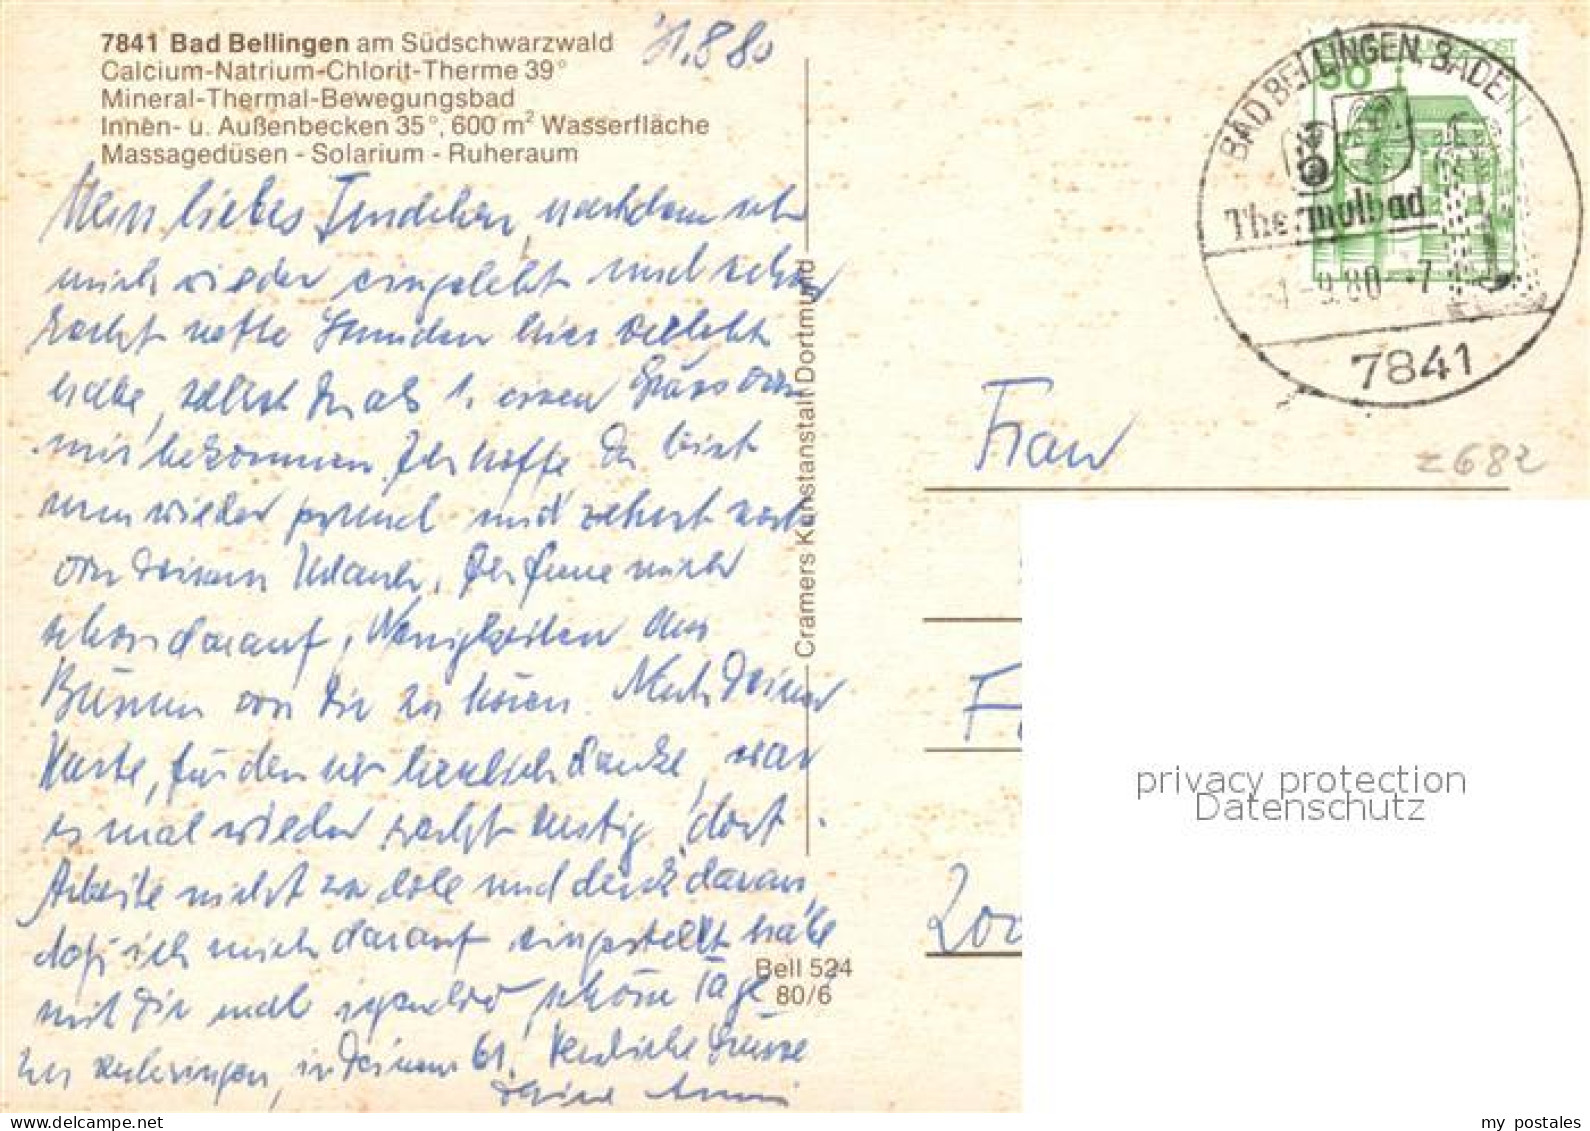 7841 Bad Bellingen am Südschwarzwald
Calcium-Natrium-Chlorit-Therme 39°
Mineral-Thermal-Bewegungsbad
Innen- u. Außenbecken 35°, 600 m² Wasserfläche
Massagedüsen - Solarium - Ruheraum
31.8.80
Mein liebes, nachdem ich
mich wieder eingelebt und schon
recht nette Stunden hier verlebt
habe, sollst Du als 1. einen Gruss von
mir bekommen. Ich hoffe Du bist
nun wieder gesund und zehrst noch
von Deinem Urlaub. Ich freue mich
schon darauf, Neuigkeiten aus
von Dir zu hören. Nach Deiner
Karte, für den ich herzlich danke, war
es mal wieder recht lustig dort.
Arbeite nicht zu dole und denk daran
daß ich mich darauf eingestellt habe
mit Dir mal irgendwo schöne Tage
zu verbringen, in Deinem 61. Herzliche Grüsse
Deine Anni
Cramers Kunstanstalt Dortmund
Bell 524
80/6
BAD BELLINGEN, BADEN
Thermalbad
-1.-9.80 --7
7841
50
Frau
z 682
privacy protection
Datenschutz
my postales